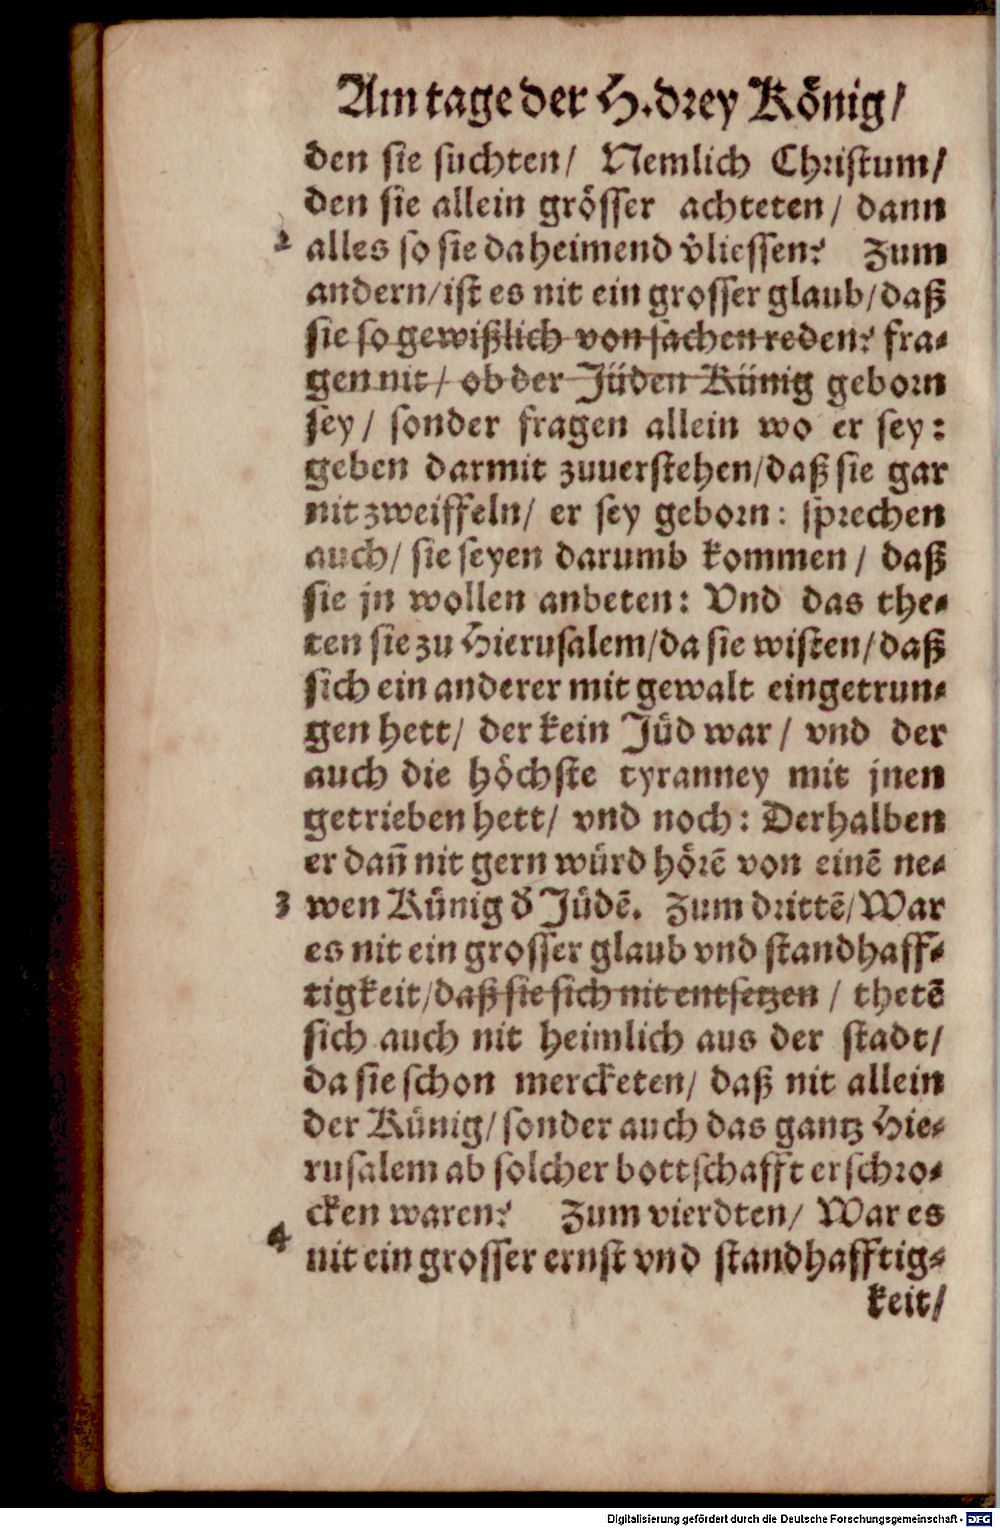 Am tage der H. drey König/
den sie suchten/ Nemlich Christum/
den sie allein grösser achteten/ dann
2 alles so sie daheimend v̈liessen? Zum
andern/ ist es nit ein grosser glaub/ daß
sie so gewißlich von sachen reden? fra-
gen nit/ ob der Jüden Künig geborn
sey/ sonder fragen allein wo er sey:
geben darmit zuuerstehen/ daß sie gar
nit zweiffeln/ er sey geborn: sprechen
auch/ sie seyen darumb kommen/ daß
sie jn wollen anbeten: Vnd das the-
ten sie zu Hierusalem/ da sie wisten/ daß
sich ein anderer mit gewalt eingetrun-
gen hett/ der kein Jüd war/ vnd der
auch die höchste tyranney mit jnen
getrieben hett/ vnd noch: Derhalben
er dan̄ nit gern würd hörē von einē ne-
3 wen Künig d̓ Jüdē. Zum drittē/ War
es nit ein grosser glaub vnd standhaff-
tigkeit/ daß sie sich nit entsetzen/ thetē
sich auch nit heimlich aus der stadt/
da sie schon mercketen/ daß nit allein
der Künig/ sonder auch das gantz Hie-
rusalem ab solcher bottschafft erschro-
cken waren? Zum vierdten/ War es
4 nit ein grosser ernst vnd standhafftig-
keit/
Digitalisierung gefördert durch die Deutsche Forschungsgemeinschaft - DFG